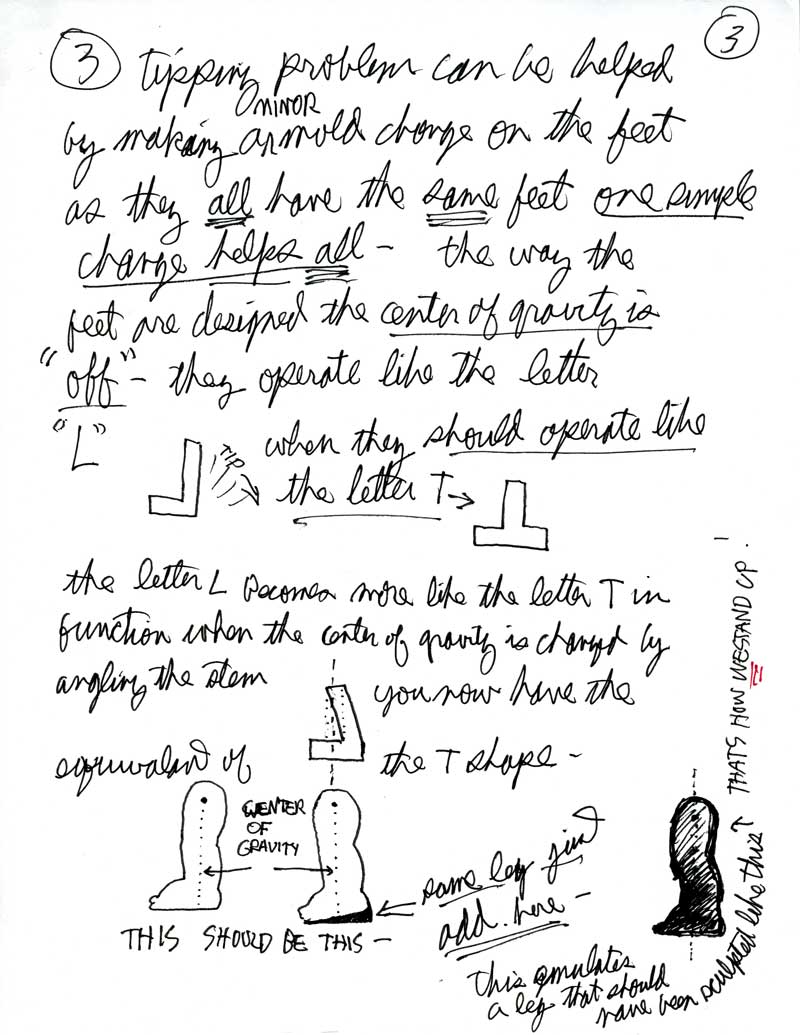 3
3 tipping problem can be helped
MINOR
by making a mold change on the feet
as they all have the same feet one simple
change helps all – the way the
feet are designed the center of gravity is
"off" – they operate like the letter
"L" when they should operate like
the letter T →
the letter L becomes more like the letter T in
function when the center of gravity is changed by
angling the stem you now have the
equivalent of the T shape –
CENTER
OF
GRAVITY
same leg just
add here –
THIS SHOULD BE THIS –
this emulates
a leg that should
have been sculpted like this ↑ THATS HOW WE STAND UP.